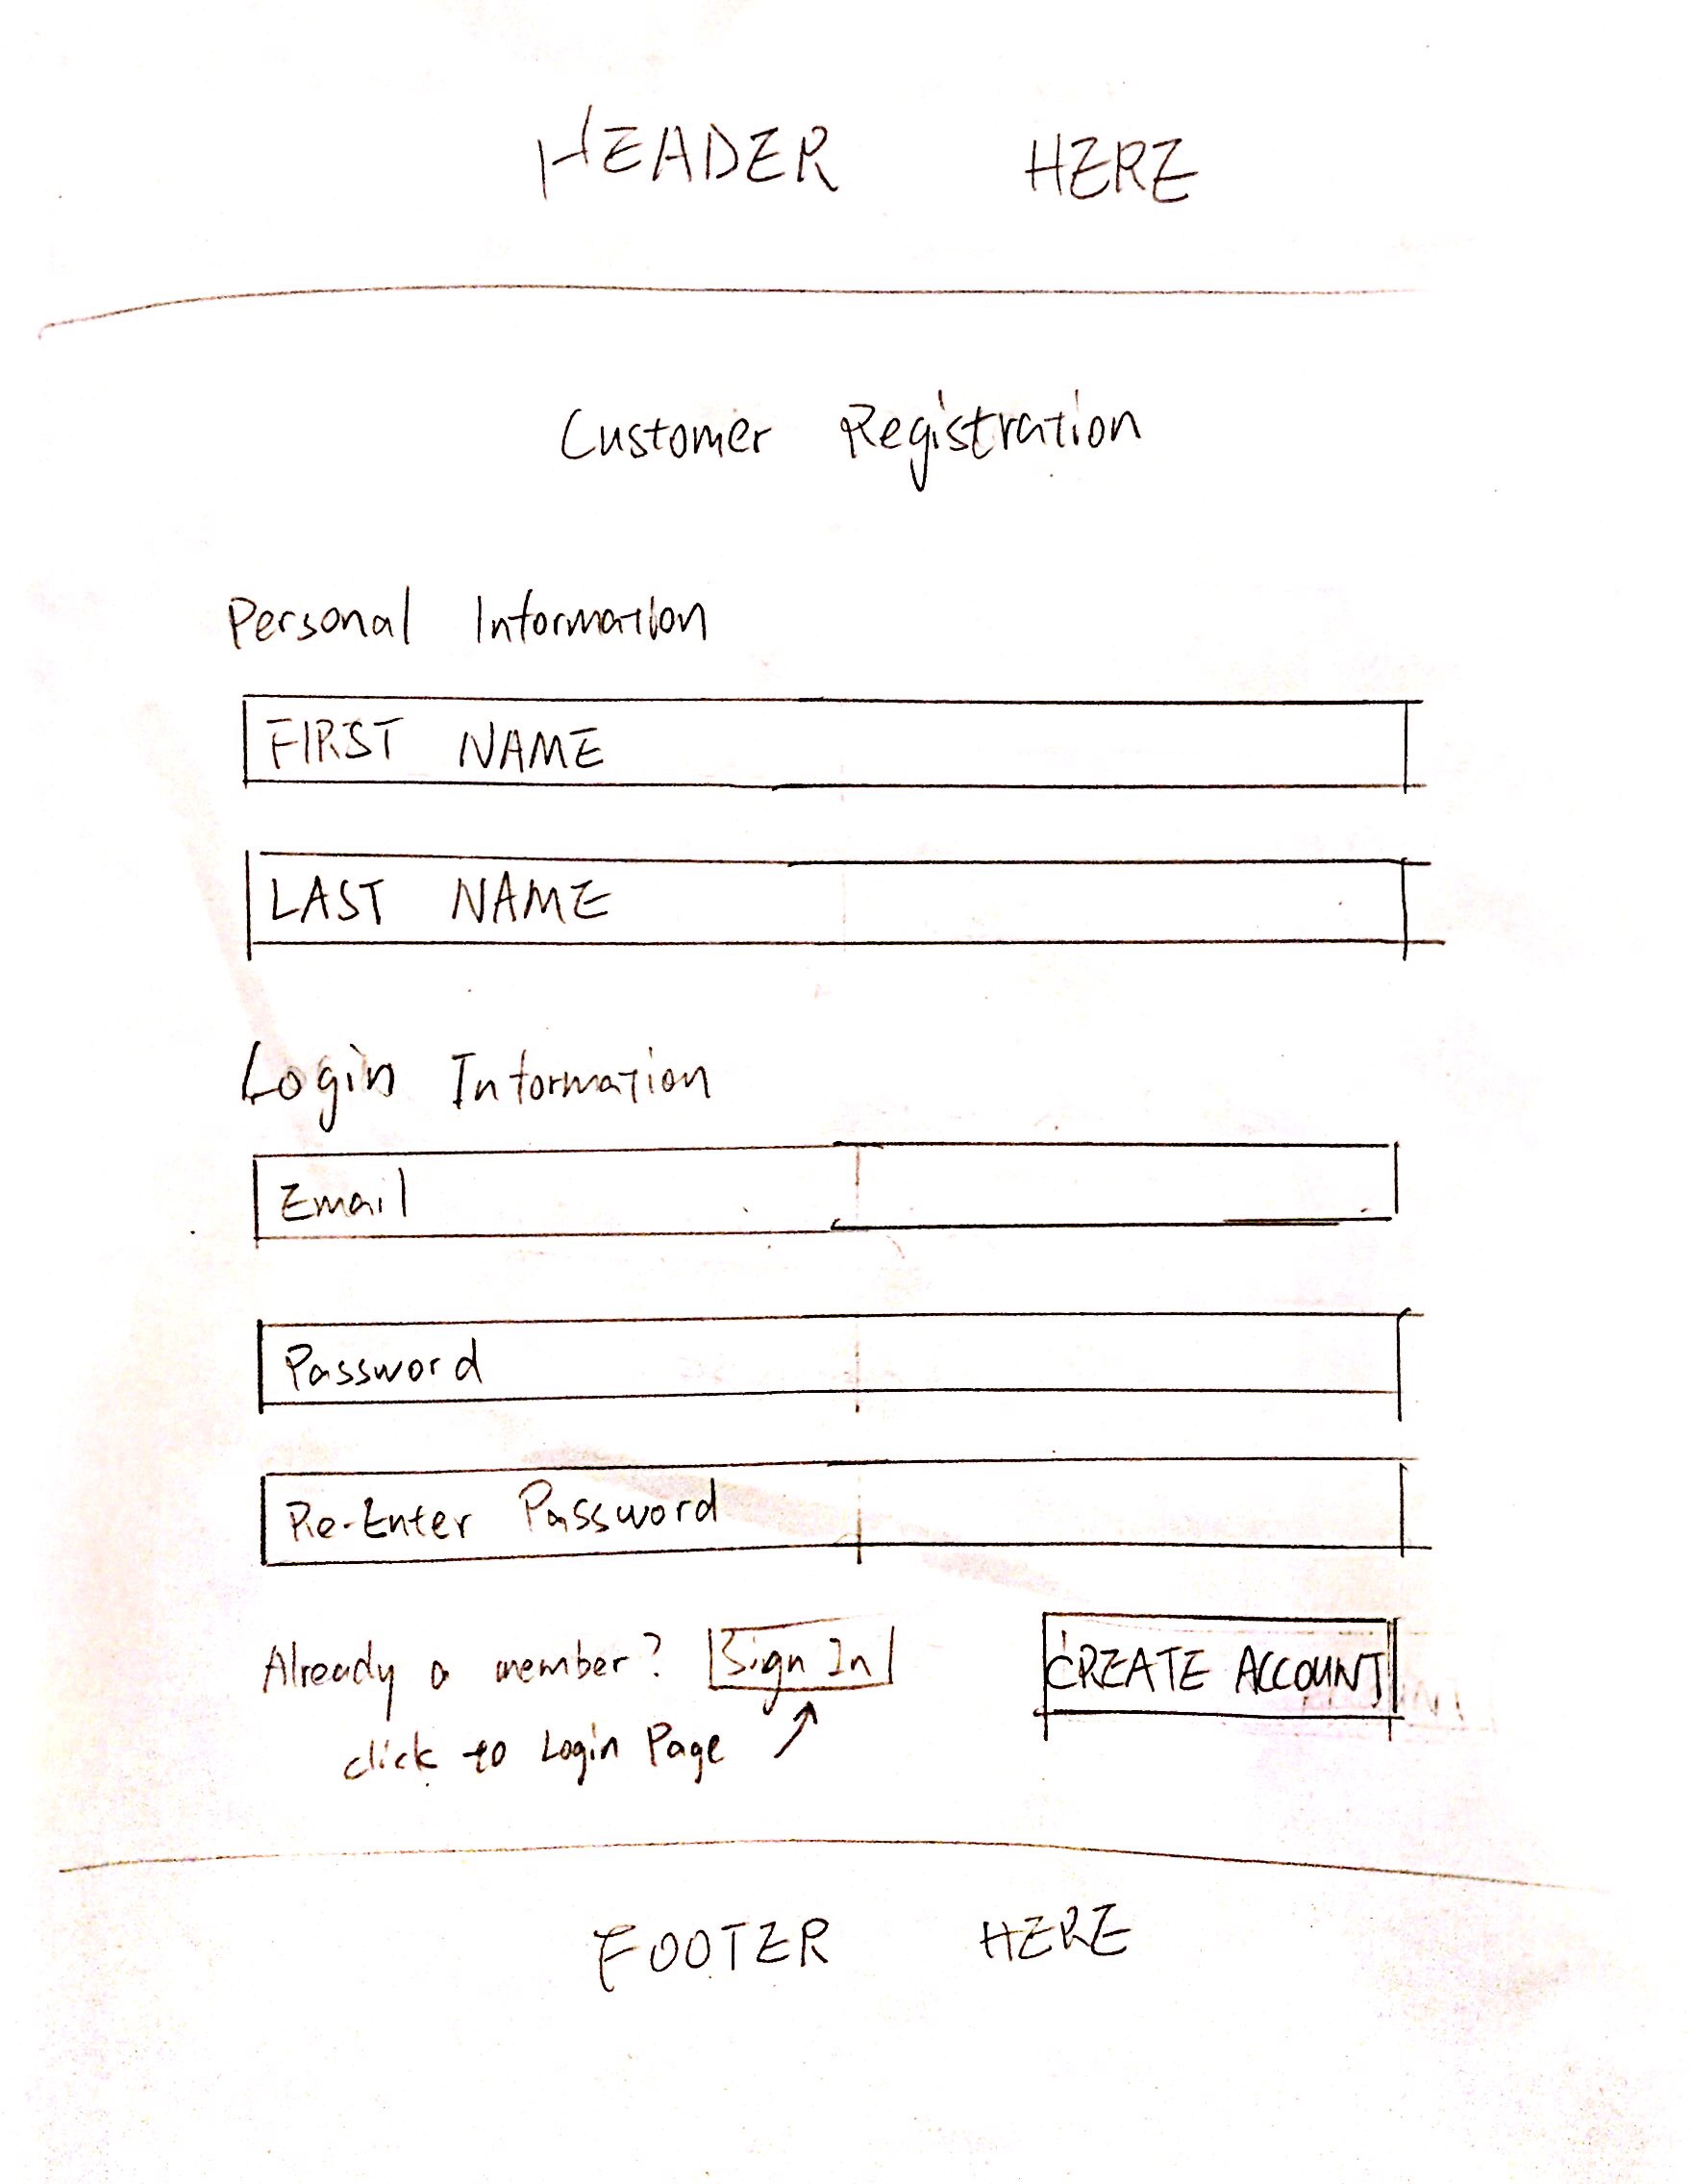 HEADER HERE
Customer Registration
Personal Information
FIRST NAME
LAST NAME
Login Information
Email
Password
Re-Enter Password
Already a member? Sign In CREATE ACCOUNT
click to Login Page
FOOTER HERE